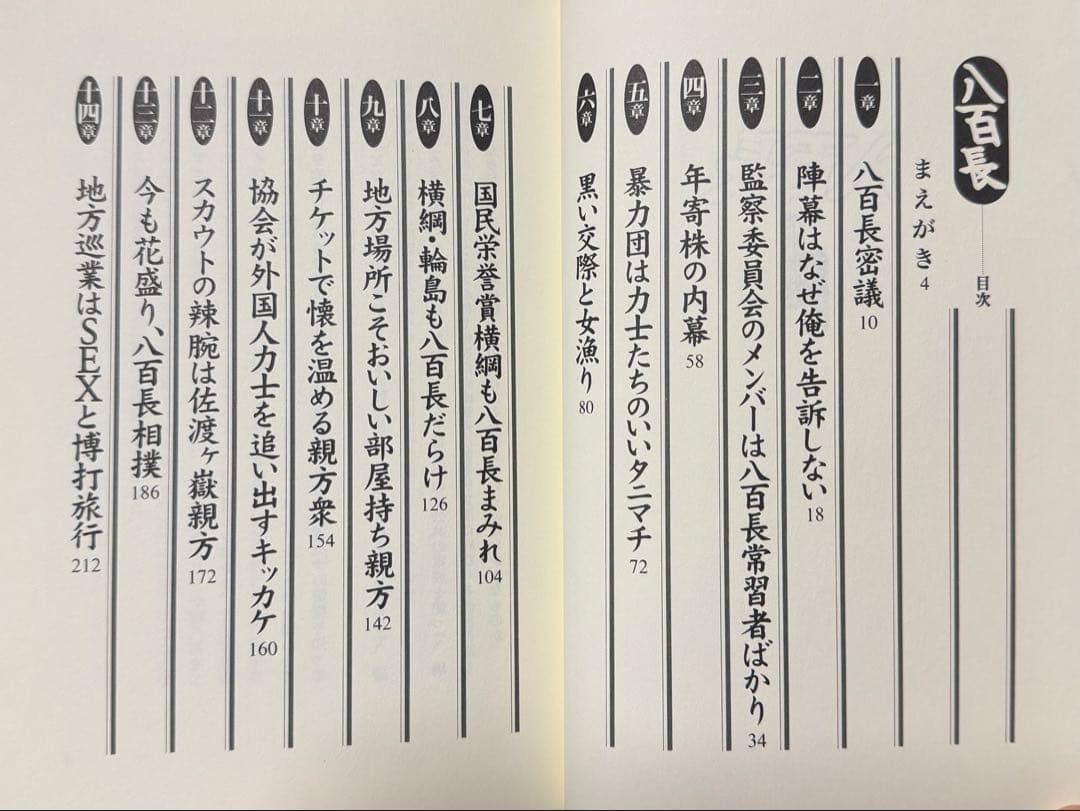 八百長
目次
まえがき 4
一章 八百長密議 10
二章 陣幕はなぜ俺を告訴しない 18
三章 監察委員会のメンバーは八百長常習者ばかり 34
四章 年寄株の内幕 58
五章 暴力団は力士たちのいいタニマチ 72
六章 黒い交際と女漁り 80
七章 国民栄誉賞横綱も八百長まみれ 104
八章 横綱・輪島も八百長だらけ 126
九章 地方場所こそおいしい部屋持ち親方 142
十章 チケットで懐を温める親方衆 154
十一章 協会が外国人力士を追い出すキッカケ 160
十二章 スカウトの辣腕は佐渡ヶ嶽親方 172
十三章 今も花盛り、八百長相撲 186
十四章 地方巡業はSEXと博打旅行 212